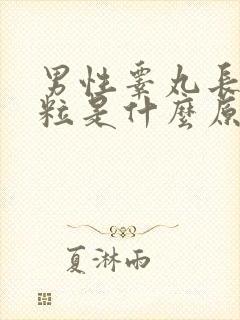 男性睾丸長
粒是什麼原
夏淋雨